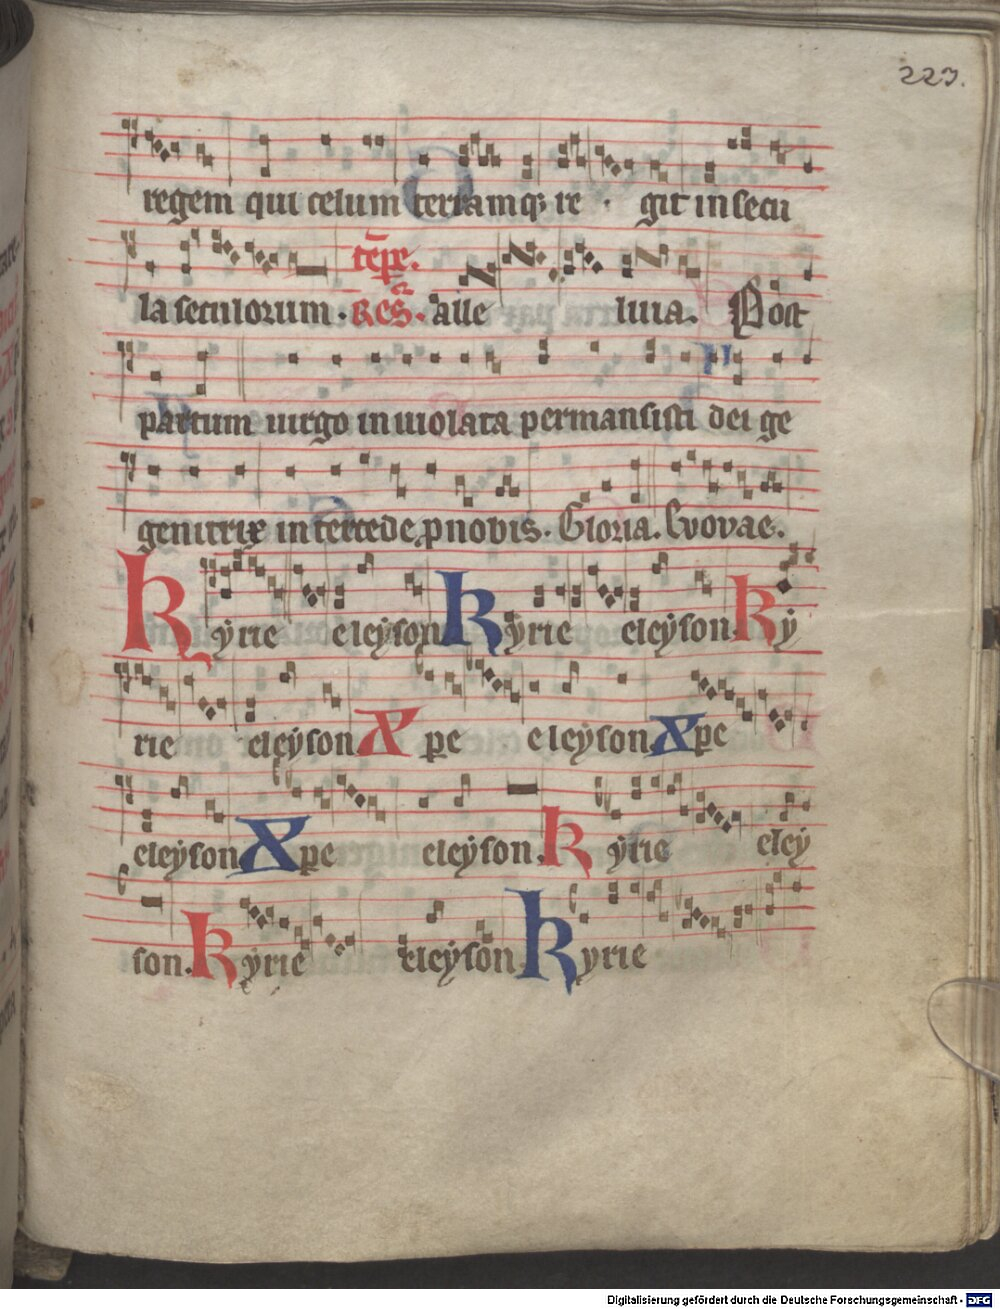 223.
regem qui celum terramqꝫ re · git in secu
la seculorum · Res̄. alle luia. Post
tēpe.
partum uirgo inuiolata permansisti dei ge
genitrix intercede ꝓ nobis. Gloria. Evovae.
Kÿrie eleÿson Kÿrie eleÿson. Kÿ
rie eleÿson. Xp̄e eleÿson. Xp̄e
eleÿson Xp̄e eleÿson. Kÿrie eleÿ
son. Kÿrie eleÿson Kyrie
Digitalisierung gefördert durch die Deutsche Forschungsgemeinschaft - DFG